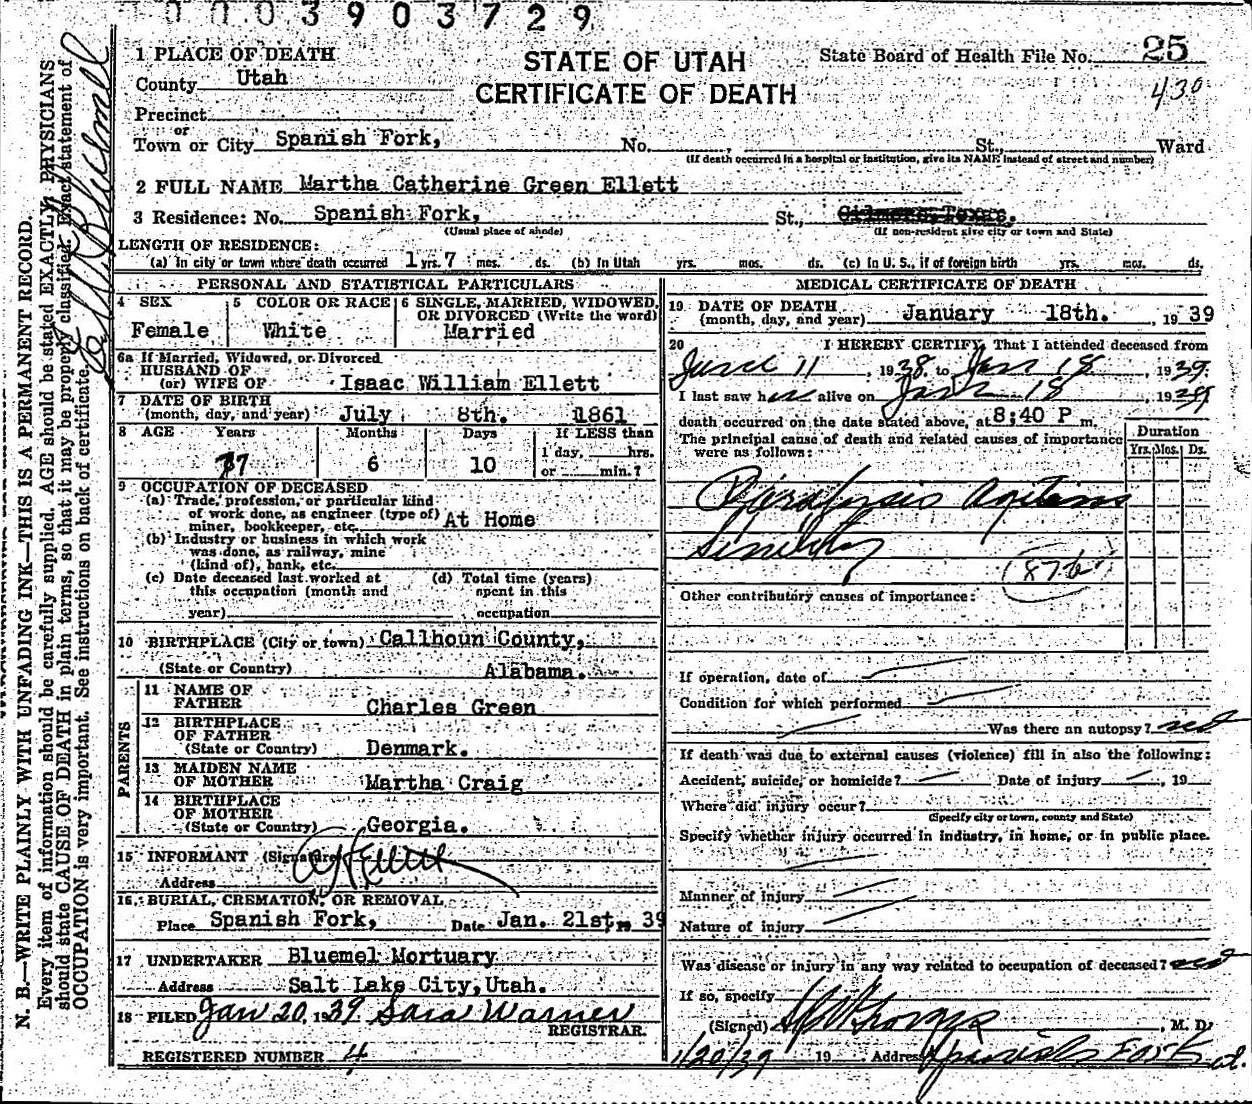 0003903729
STATE OF UTAH
CERTIFICATE OF DEATH
State Board of Health File No. 25
430
1 PLACE OF DEATH
County Utah
Precinct
or
Town or City Spanish Fork, No. , St., Ward
(If death occurred in a hospital or institution, give its NAME instead of street and number)
2 FULL NAME Martha Catherine Green Ellett
3 Residence: No. Spanish Fork, St., Gilmore, Texas.
(Usual place of abode) (If non-resident give city or town and State)
LENGTH OF RESIDENCE:
(a) In city or town where death occurred 1 yrs. 7 mos. ds. (b) In Utah yrs. mos. ds. (c) In U. S., if of foreign birth yrs. mos. ds.
PERSONAL AND STATISTICAL PARTICULARS
4 SEX
Female
5 COLOR OR RACE
White
6 SINGLE, MARRIED, WIDOWED,
OR DIVORCED (Write the word)
Married
6a If Married, Widowed, or Divorced
HUSBAND OF
(or) WIFE OF Isaac William Ellett
7 DATE OF BIRTH
(month, day, and year) July 8th. 1861
8 AGE Years Months Days If LESS than
77 6 10 1 day, hrs.
or min.?
9 OCCUPATION OF DECEASED
(a) Trade, profession, or particular kind
of work done, as engineer (type of)
miner, bookkeeper, etc. At Home
(b) Industry or business in which work
was done, as railway, mine
(kind of), bank, etc.
(c) Date deceased last worked at
this occupation (month and
year)
(d) Total time (years)
spent in this
occupation
10 BIRTHPLACE (City or town) Callhoun County,
(State or Country) Alabama.
PARENTS
11 NAME OF
FATHER Charles Green
12 BIRTHPLACE
OF FATHER
(State or Country) Denmark.
13 MAIDEN NAME
OF MOTHER Martha Craig
14 BIRTHPLACE
OF MOTHER
(State or Country) Georgia.
15 INFORMANT (Signature)
Address
16. BURIAL, CREMATION, OR REMOVAL
Place Spanish Fork, Date Jan. 21st, 19 39
17 UNDERTAKER Bluemel Mortuary
Address Salt Lake City, Utah.
18 FILED Jan 20, 1939 Sara Warner
REGISTRAR.
REGISTERED NUMBER 4
MEDICAL CERTIFICATE OF DEATH
19 DATE OF DEATH
(month, day, and year) January 18th. , 19 39
20 I HEREBY CERTIFY, That I attended deceased from
11 , 1938, to Jan 18 , 1939.
I last saw her alive on Jan 18 , 1939
death occurred on the date stated above, at 8:40 P m.
The principal cause of death and related causes of importance
were as follows:
Duration
Yrs. Mos. Ds.
Paralysis Agitans
Senility
Other contributory causes of importance:
If operation, date of
Condition for which performed
Was there an autopsy? no
If death was due to external causes (violence) fill in also the following:
Accident, suicide, or homicide? Date of injury , 19
Where did injury occur?
(Specify city or town, county and State)
Specify whether injury occurred in industry, in home, or in public place.
Manner of injury
Nature of injury
Was disease or injury in any way related to occupation of deceased? no
If so, specify
(Signed) , M. D.
1/20/39 19 Address Spanish Fork ut.
N. B.—WRITE PLAINLY WITH UNFADING INK—THIS IS A PERMANENT RECORD.
Every item of information should be carefully supplied. AGE should be stated EXACTLY. PHYSICIANS
should state CAUSE OF DEATH in plain terms, so that it may be properly classified. Exact statement of
OCCUPATION is very important. See instructions on back of certificate.
Bluemel